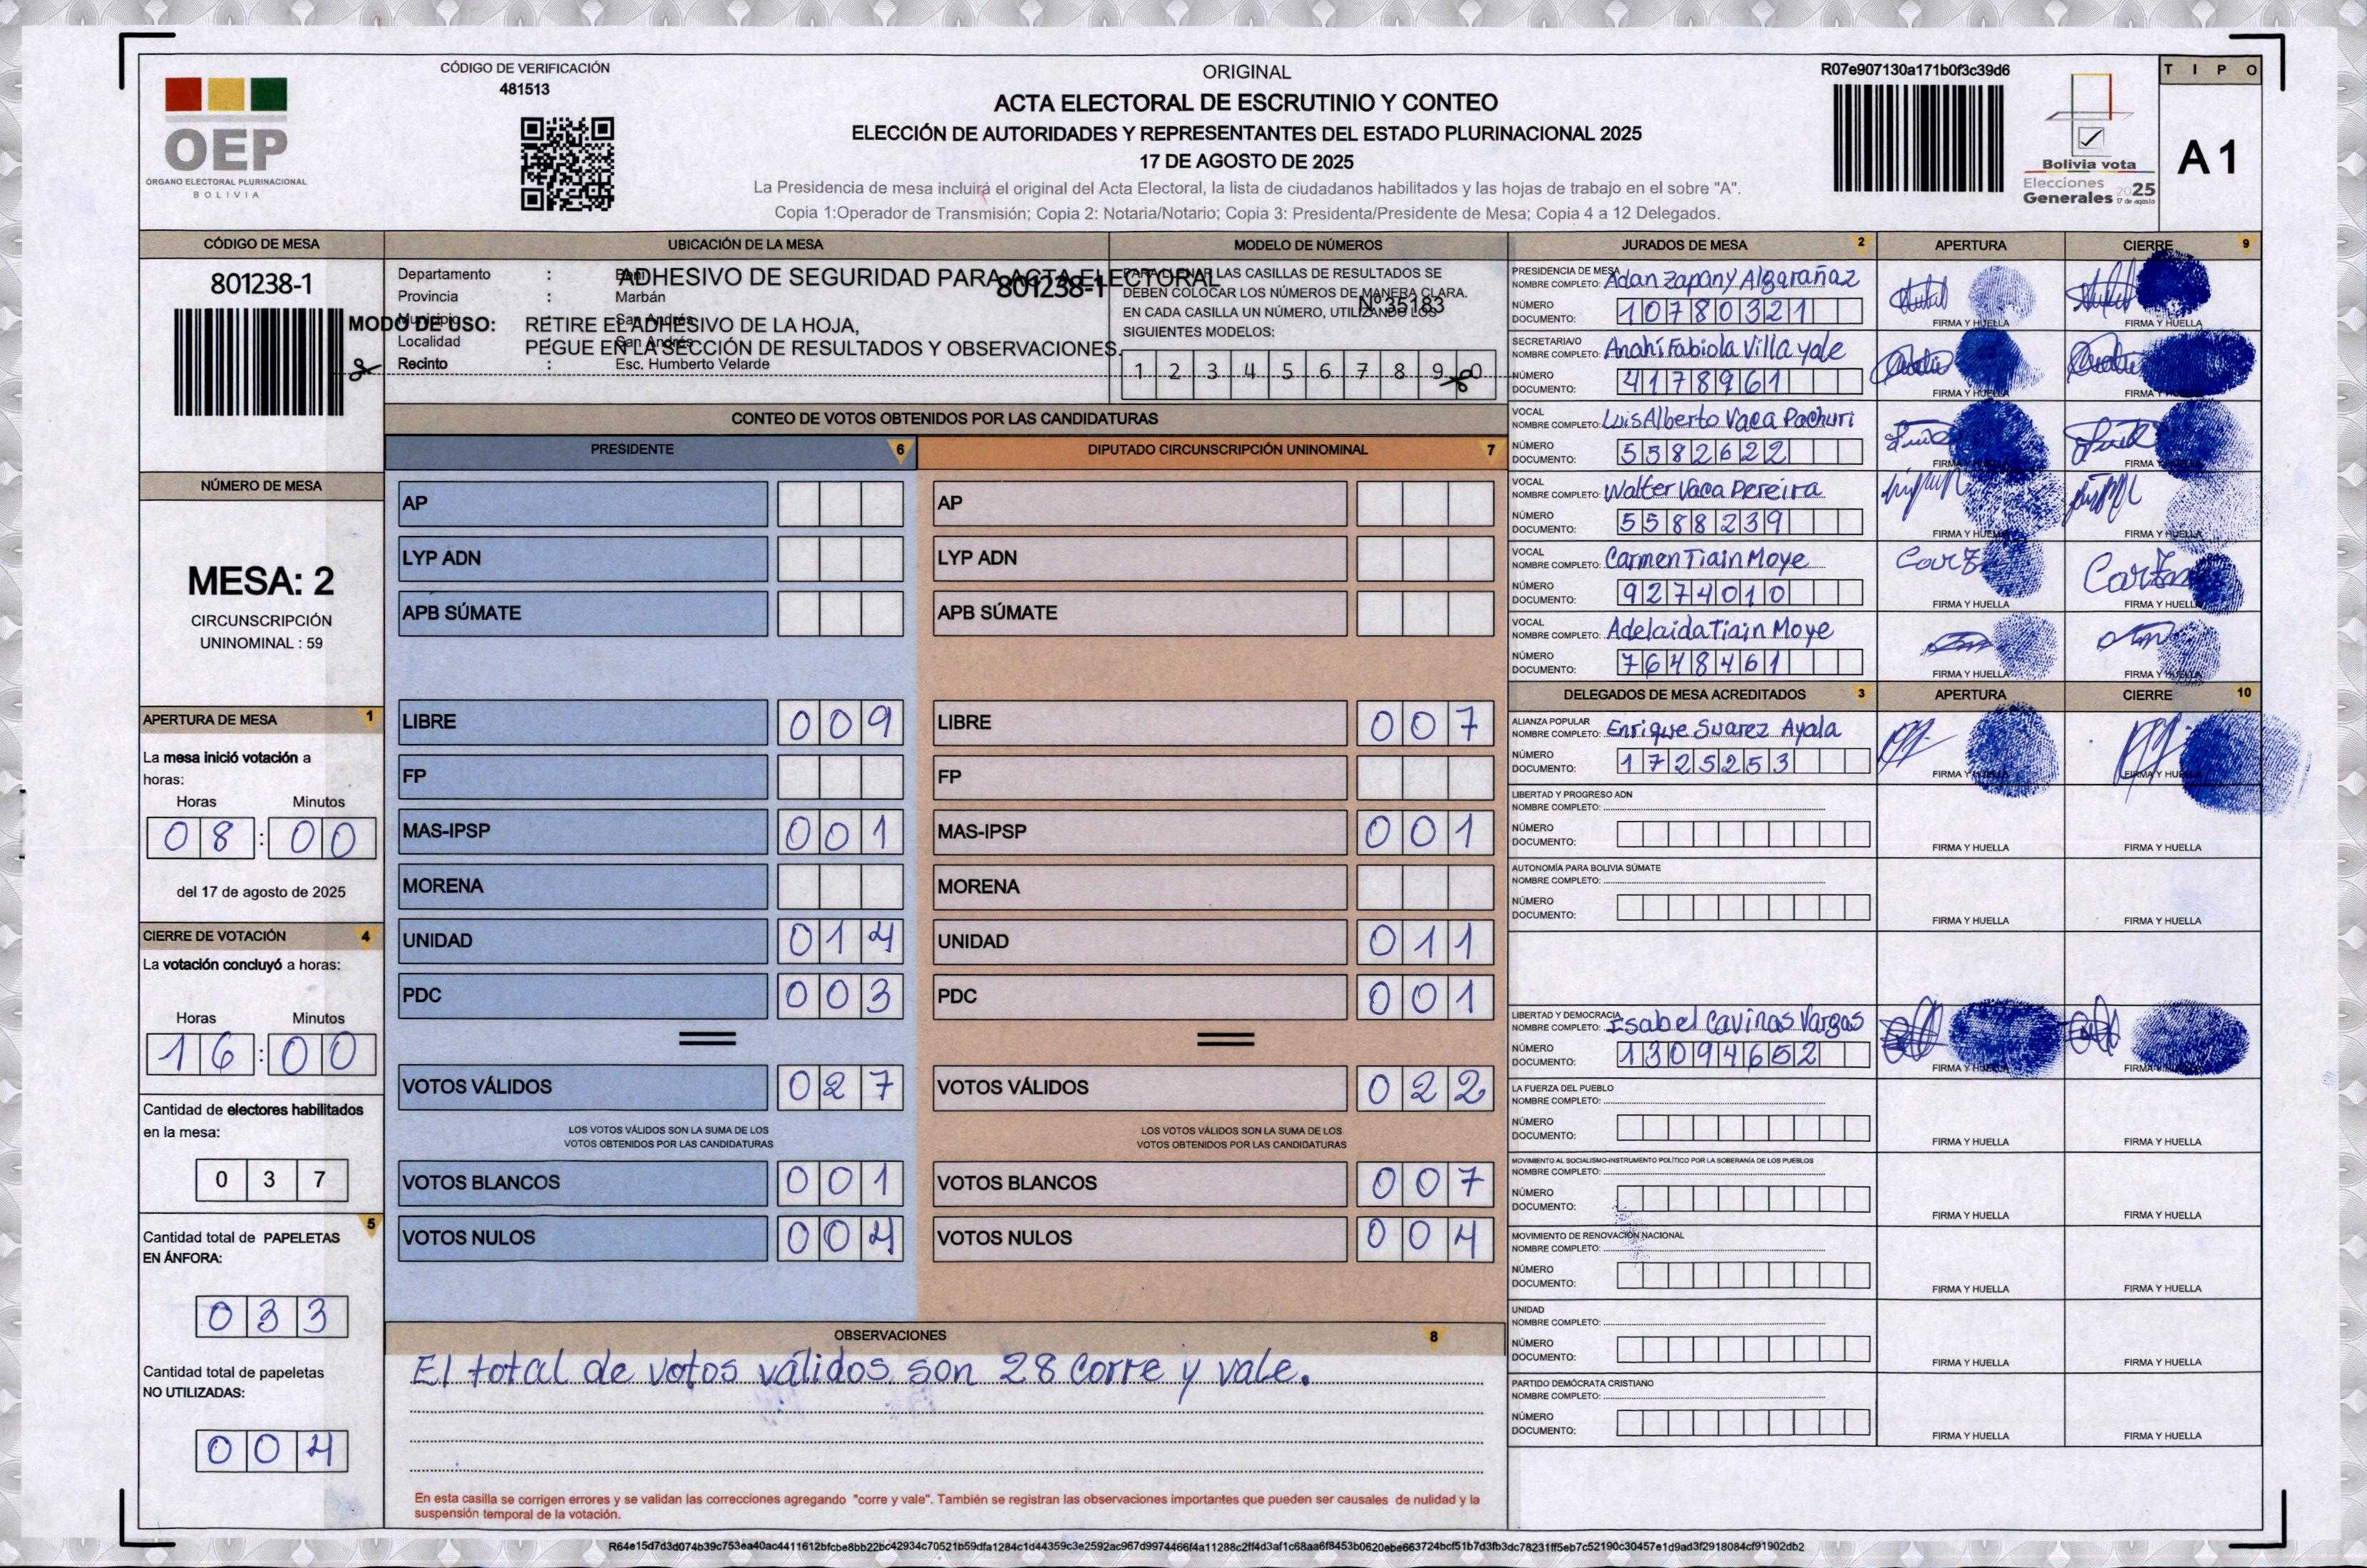 CÓDIGO DE VERIFICACIÓN
481513
OEP
ÓRGANO ELECTORAL PLURINACIONAL
BOLIVIA
ORIGINAL
ACTA ELECTORAL DE ESCRUTINIO Y CONTEO
ELECCIÓN DE AUTORIDADES Y REPRESENTANTES DEL ESTADO PLURINACIONAL 2025
17 DE AGOSTO DE 2025
La Presidencia de mesa incluirá el original del Acta Electoral, la lista de ciudadanos habilitados y las hojas de trabajo en el sobre "A".
Copia 1:Operador de Transmisión; Copia 2: Notaria/Notario; Copia 3: Presidenta/Presidente de Mesa; Copia 4 a 12 Delegados.
R07e907130a171b0f3c39d6
Bolivia vota
Elecciones
Generales 2025
17 de agosto
TIPO
A 1
CÓDIGO DE MESA
801238-1
UBICACIÓN DE LA MESA
Departamento : Beni
Provincia : Marbán
Municipio : San Andrés
Localidad : San Andrés
Recinto : Esc. Humberto Velarde
801238-1
ADHESIVO DE SEGURIDAD PARA ACTA ELECTORAL
Nº 35183
MODO DE USO: RETIRE EL ADHESIVO DE LA HOJA,
PEGUE EN LA SECCIÓN DE RESULTADOS Y OBSERVACIONES.
MODELO DE NÚMEROS
PARA LLENAR LAS CASILLAS DE RESULTADOS SE
DEBEN COLOCAR LOS NÚMEROS DE MANERA CLARA.
EN CADA CASILLA UN NÚMERO, UTILIZANDO LOS
SIGUIENTES MODELOS:
1 2 3 4 5 6 7 8 9 0
NÚMERO DE MESA
MESA: 2
CIRCUNSCRIPCIÓN
UNINOMINAL : 59
APERTURA DE MESA 1
La mesa inició votación a
horas:
Horas Minutos
08 : 00
del 17 de agosto de 2025
CIERRE DE VOTACIÓN 4
La votación concluyó a horas:
Horas Minutos
16 : 00
Cantidad de electores habilitados
en la mesa:
0 3 7
5
Cantidad total de PAPELETAS
EN ÁNFORA:
0 3 3
Cantidad total de papeletas
NO UTILIZADAS:
0 0 4
CONTEO DE VOTOS OBTENIDOS POR LAS CANDIDATURAS
PRESIDENTE 6
AP
LYP ADN
APB SÚMATE
LIBRE 009
FP
MAS-IPSP 001
MORENA
UNIDAD 014
PDC 003
VOTOS VÁLIDOS 027
LOS VOTOS VÁLIDOS SON LA SUMA DE LOS
VOTOS OBTENIDOS POR LAS CANDIDATURAS
VOTOS BLANCOS 001
VOTOS NULOS 004
DIPUTADO CIRCUNSCRIPCIÓN UNINOMINAL 7
AP
LYP ADN
APB SÚMATE
LIBRE 007
FP
MAS-IPSP 001
MORENA
UNIDAD 011
PDC 001
VOTOS VÁLIDOS 022
LOS VOTOS VÁLIDOS SON LA SUMA DE LOS
VOTOS OBTENIDOS POR LAS CANDIDATURAS
VOTOS BLANCOS 007
VOTOS NULOS 004
OBSERVACIONES 8
El total de votos válidos son 28 corre y vale.
En esta casilla se corrigen errores y se validan las correcciones agregando "corre y vale". También se registran las observaciones importantes que pueden ser causales de nulidad y la
suspensión temporal de la votación.
JURADOS DE MESA 2 APERTURA CIERRE 9
PRESIDENCIA DE MESA
NOMBRE COMPLETO: Adan Zapany Algarañaz
NÚMERO
DOCUMENTO: 10780321
FIRMA Y HUELLA FIRMA Y HUELLA
SECRETARIA/O
NOMBRE COMPLETO: Anahí Fabiola Villa yale
NÚMERO
DOCUMENTO: 4178961
FIRMA Y HUELLA FIRMA Y HUELLA
VOCAL
NOMBRE COMPLETO: Luis Alberto Vaca Pachuri
NÚMERO
DOCUMENTO: 5582622
FIRMA Y HUELLA FIRMA Y HUELLA
VOCAL
NOMBRE COMPLETO: Walter Vaca Pereira
NÚMERO
DOCUMENTO: 5588239
FIRMA Y HUELLA FIRMA Y HUELLA
VOCAL
NOMBRE COMPLETO: Carmen Tiain Moye
NÚMERO
DOCUMENTO: 9274010
FIRMA Y HUELLA FIRMA Y HUELLA
VOCAL
NOMBRE COMPLETO: Adelaida Tiain Moye
NÚMERO
DOCUMENTO: 7648461
FIRMA Y HUELLA FIRMA Y HUELLA
DELEGADOS DE MESA ACREDITADOS 3 APERTURA CIERRE 10
ALIANZA POPULAR
NOMBRE COMPLETO: Enrique Suarez Ayala
NÚMERO
DOCUMENTO: 1725253
FIRMA Y HUELLA FIRMA Y HUELLA
LIBERTAD Y PROGRESO ADN
NOMBRE COMPLETO:
NÚMERO
DOCUMENTO:
FIRMA Y HUELLA FIRMA Y HUELLA
AUTONOMÍA PARA BOLIVIA SÚMATE
NOMBRE COMPLETO:
NÚMERO
DOCUMENTO:
FIRMA Y HUELLA FIRMA Y HUELLA
LIBERTAD Y DEMOCRACIA
NOMBRE COMPLETO: Isabel Cavinas Vargas
NÚMERO
DOCUMENTO: 13094652
FIRMA Y HUELLA FIRMA Y HUELLA
LA FUERZA DEL PUEBLO
NOMBRE COMPLETO:
NÚMERO
DOCUMENTO:
FIRMA Y HUELLA FIRMA Y HUELLA
MOVIMIENTO AL SOCIALISMO-INSTRUMENTO POLÍTICO POR LA SOBERANÍA DE LOS PUEBLOS
NOMBRE COMPLETO:
NÚMERO
DOCUMENTO:
FIRMA Y HUELLA FIRMA Y HUELLA
MOVIMIENTO DE RENOVACIÓN NACIONAL
NOMBRE COMPLETO:
NÚMERO
DOCUMENTO:
FIRMA Y HUELLA FIRMA Y HUELLA
UNIDAD
NOMBRE COMPLETO:
NÚMERO
DOCUMENTO:
FIRMA Y HUELLA FIRMA Y HUELLA
PARTIDO DEMÓCRATA CRISTIANO
NOMBRE COMPLETO:
NÚMERO
DOCUMENTO:
FIRMA Y HUELLA FIRMA Y HUELLA